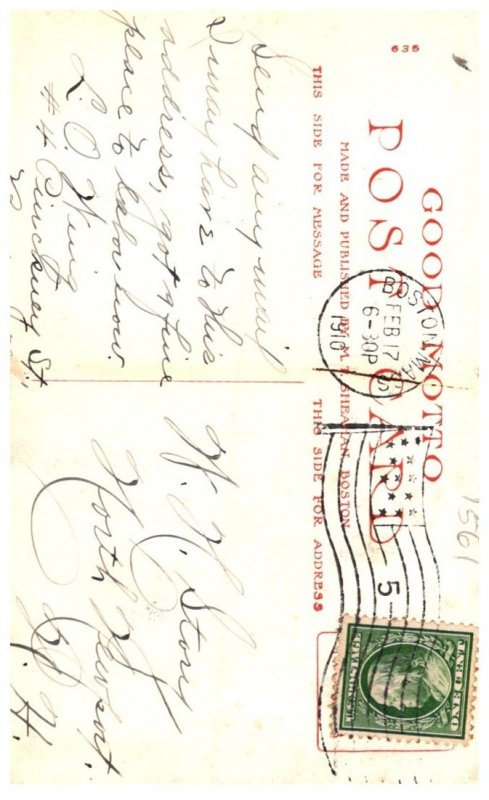 635
GOOD MOTTO
POST CARD
MADE AND PUBLISHED BY M. T. SHEAHAN, BOSTON
THIS SIDE FOR MESSAGE
THIS SIDE FOR ADDRESS
BOSTON, MA
FEB 17
6-30P
1910
5
1561
Send any mail
I may have to this
address, got a fine
place to labor now.
L. O. Wing
#4 Pinckney St,
W. H. Story
North
N. H.
U.S. POSTAGE
ONE CENT